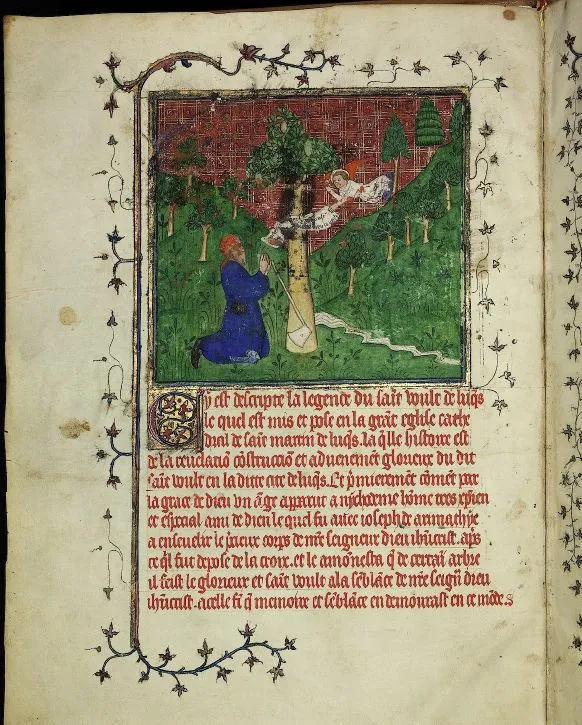 Cy est descripte la legende du saīt voult de luq̄s
le quel est mis et pose en la grāt eglise cathe
dral de saīt martin de luq̄s. La q̄lle histoire est
de la reuelaciō cōstruccōn et aduenemēt glorieux du dit
saīt voult en la dicte cite de luq̄s. Et p̄mieremēt cōmēt par
la grace de dieu vn āge apparut a nychodeme hōme tres xp̄ien
et especial ami de dieu le quel fu auec ioseph de armathye
a enseuelir le p̄cieux corps de nr̄e seigneur dieu ihūcrist. apr̄s
ce q̄l fut depose de la croix. et le amonesta q̄ de certaī arbre
il feist le glorieux et saīt voult a la sēblāce de nr̄e seign̄r dieu
ihūcrist. a celle fī q̄ memoire et sēblāce en demourast en ce mōde.